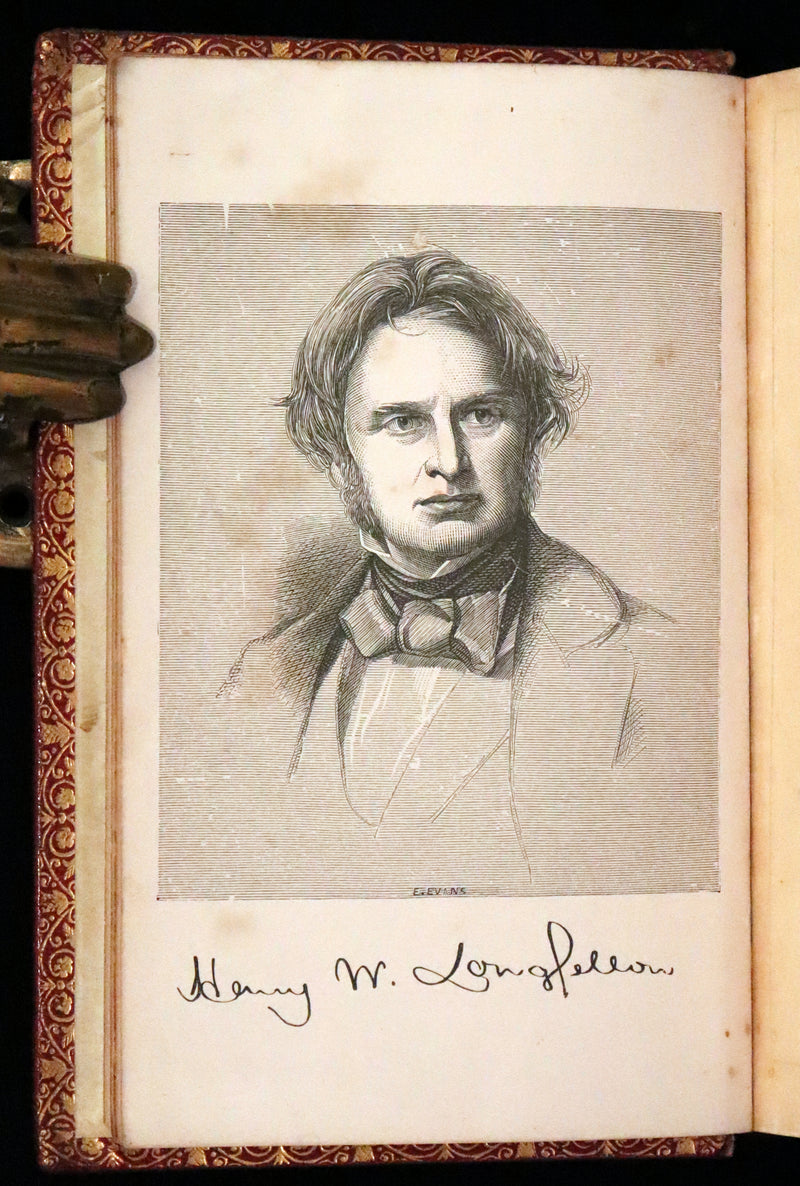 E. EVANS
Henry W. Longfellow